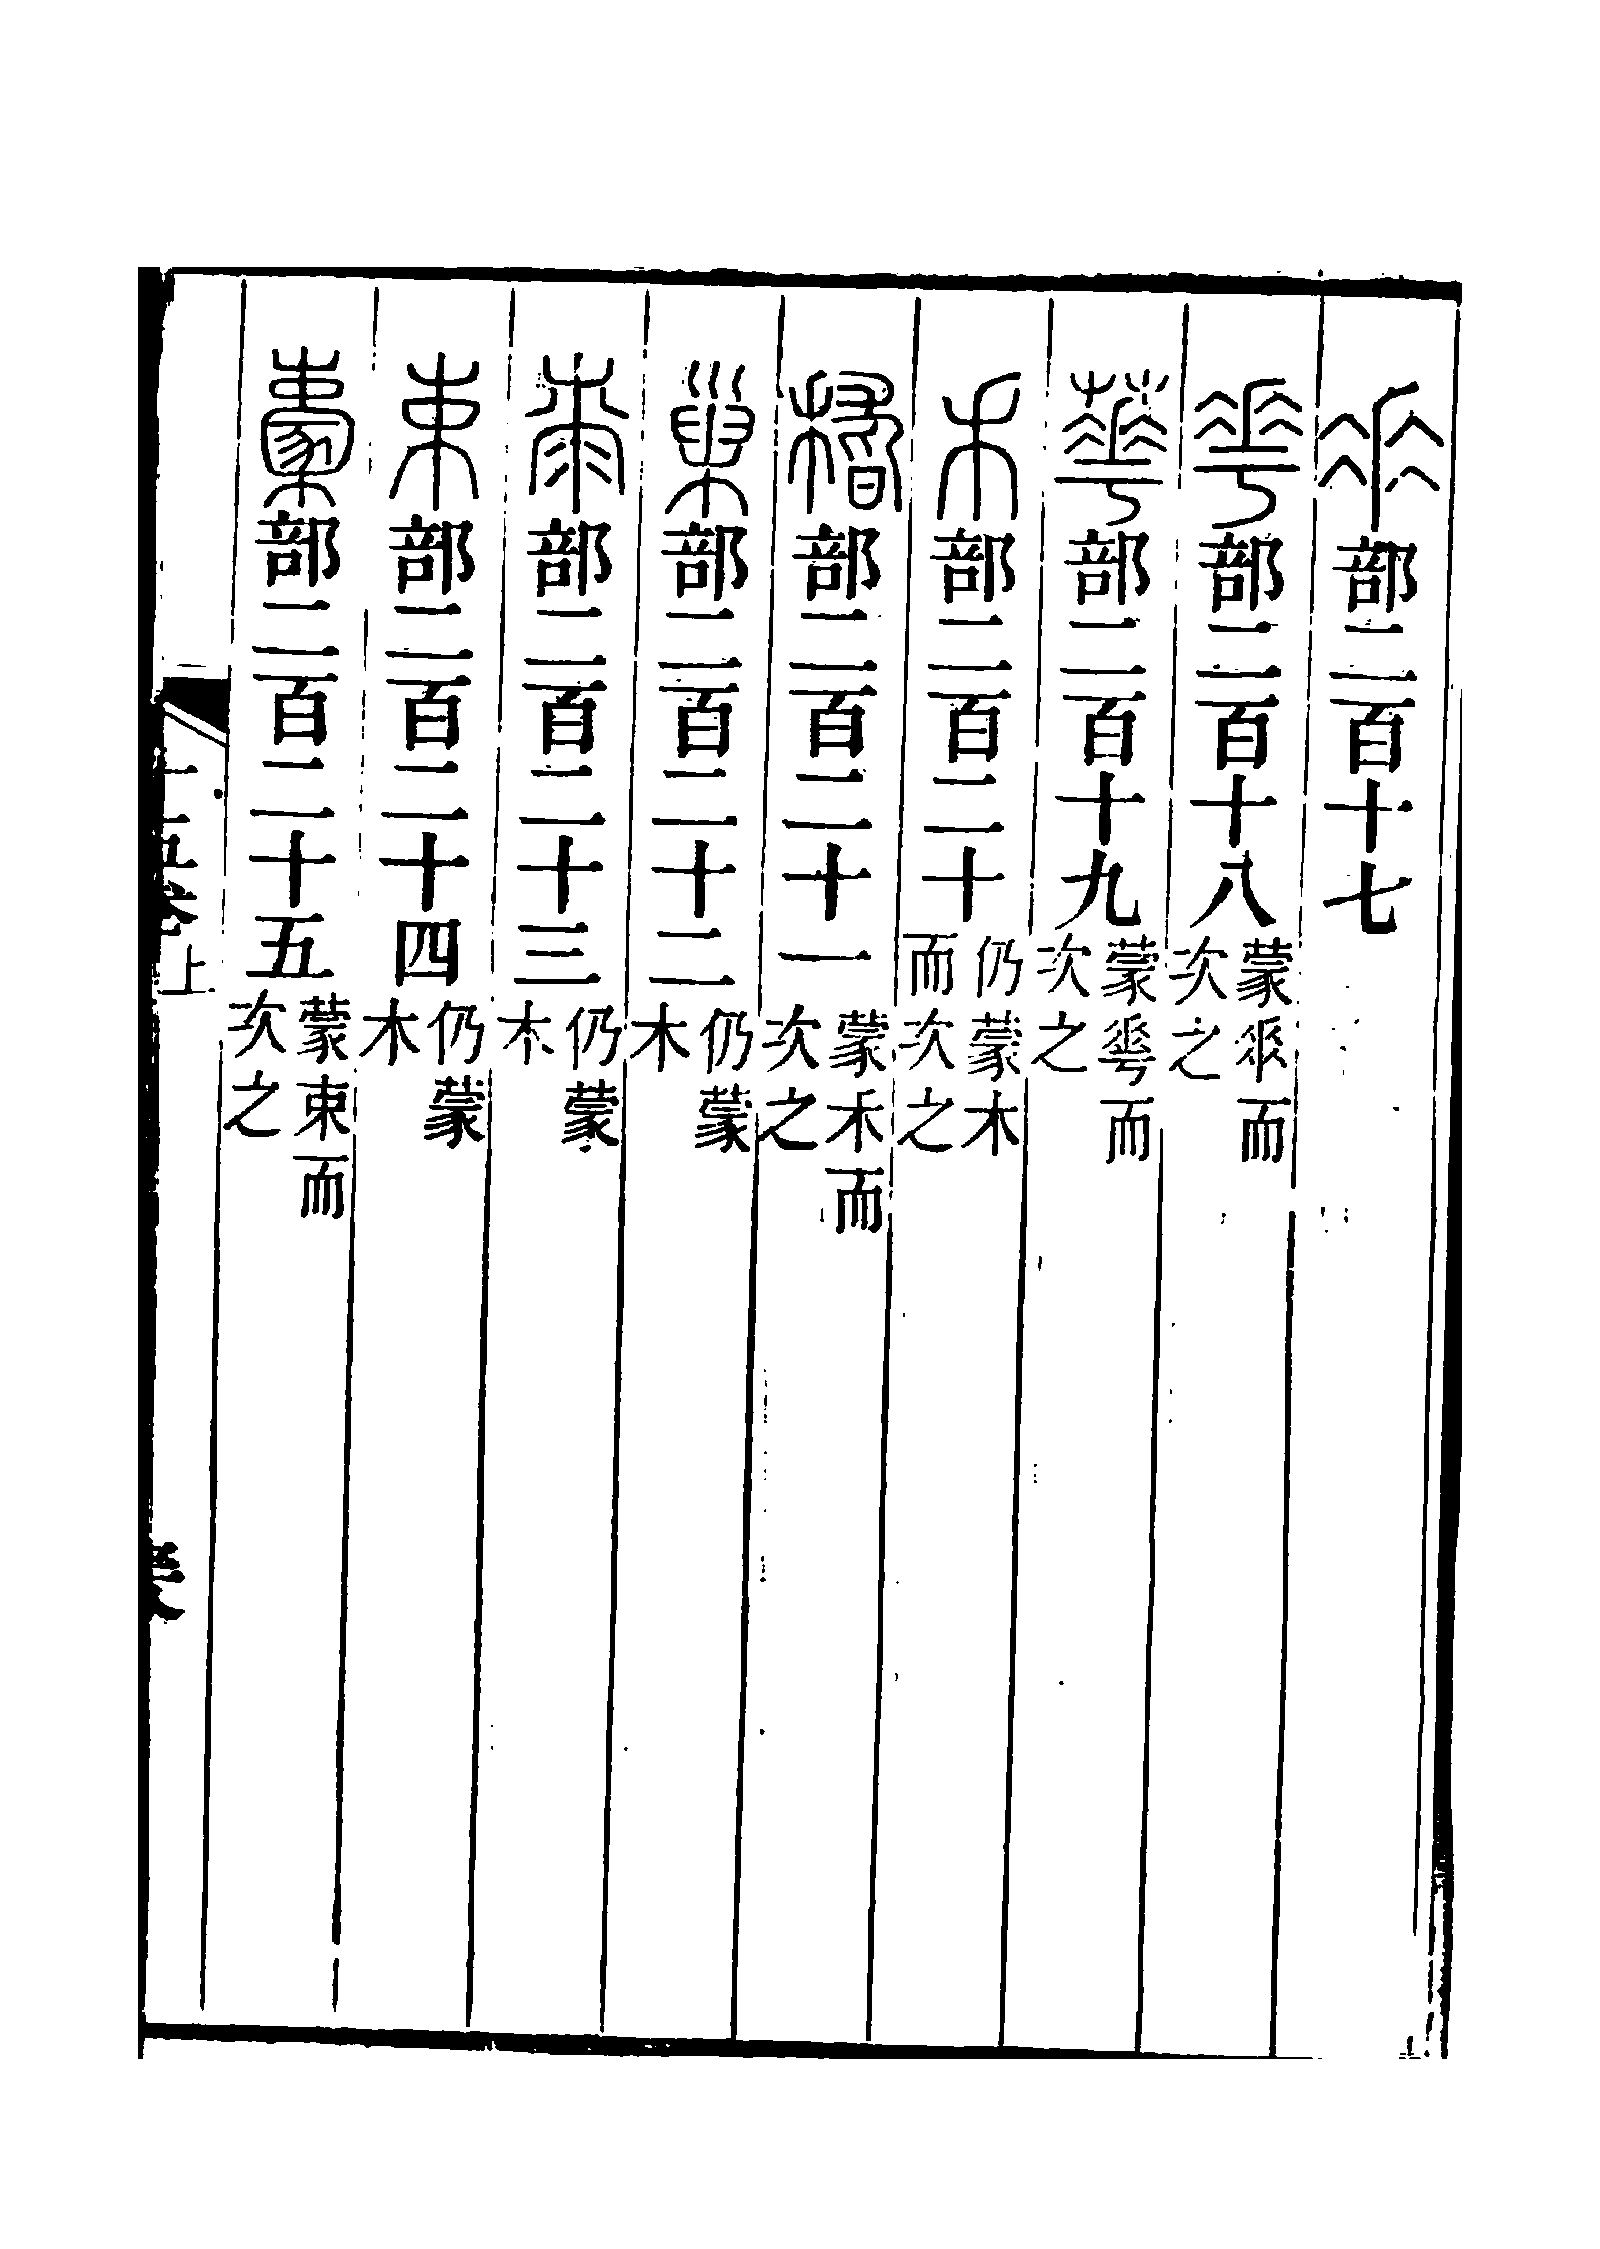 𠂹部二百十七
𠌶部二百十八蒙𠂹而次之
華部二百十九蒙𠌶而次之
𥝌部二百二十仍蒙木而次之
稽部二百二十一蒙𥝌而次之
巢部二百二十二仍蒙木
桼部二百二十三仍蒙木
束部二百二十四仍蒙木
㯻部二百二十五蒙束而次之
上